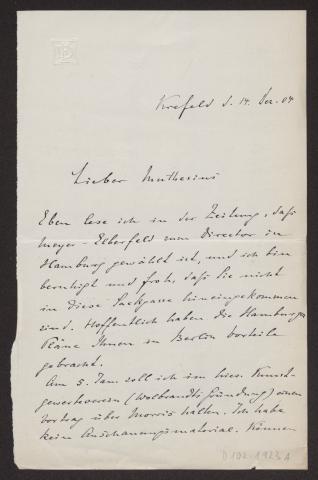 Krefeld d. 14. Dez. 04.
Lieber Muthesius
Eben lese ich in der Zeitung, daß
Meyer-Elberfeld zum Director in
Hamburg gewählt ist, und ich bin
beruhigt und froh, daß Sie nicht
in diese Sackgasse hineingekommen
sind. Hoffentlich haben die Hamburger
Pläne Ihnen in Berlin Vorteile
gebracht.
Am 5. Jan soll ich im hies. Kunst-
gewerbeverein (Wolbrandts Gründung) einen
Vortrag über Morris halten. Ich habe
kein Anschauungsmaterial. Können
D 102-1923 A